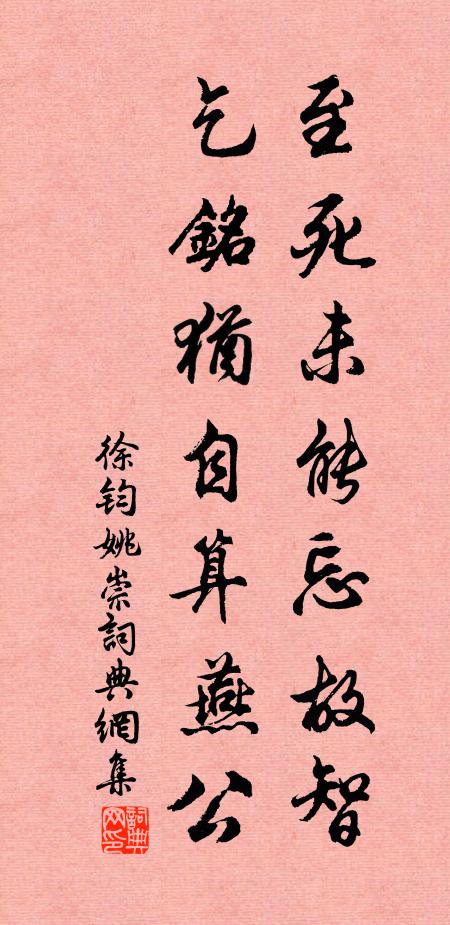 至死未能忘故智
乞銘猶自算燕公
徐鈞姚崇詞典網集
詞典网印